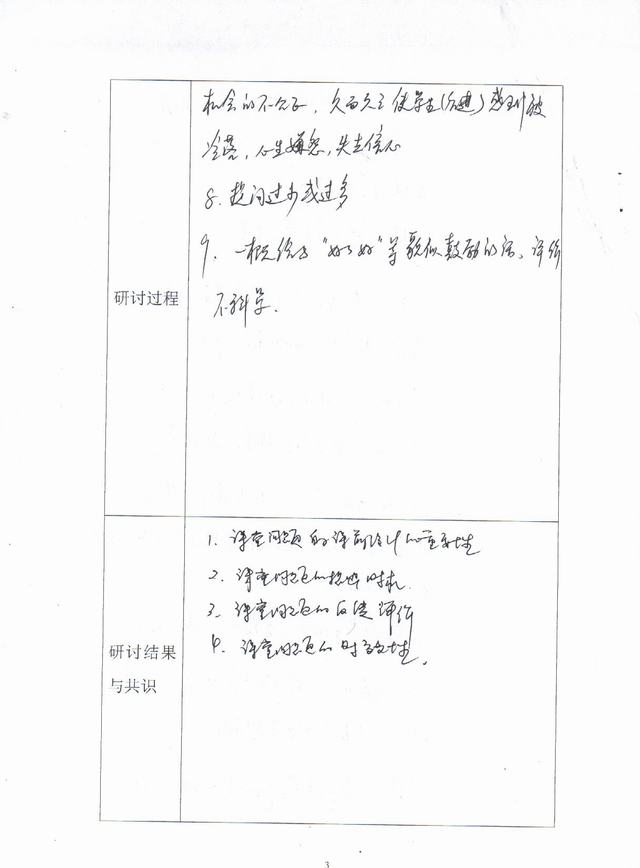 机会的不公正，久而久之使学生(后进)感到被
冷落，心生嫌怨，失去信心
8. 提问过少或过多
9. 一概给予“好了好”等貌似鼓励的话，评价
不科学.
研讨过程
1. 课堂问题的课前设计的重要性
2. 课堂问题的提出时机.
3. 课堂问题的反馈评价
4. 课堂问题的时效性.
研讨结果
与共识
3